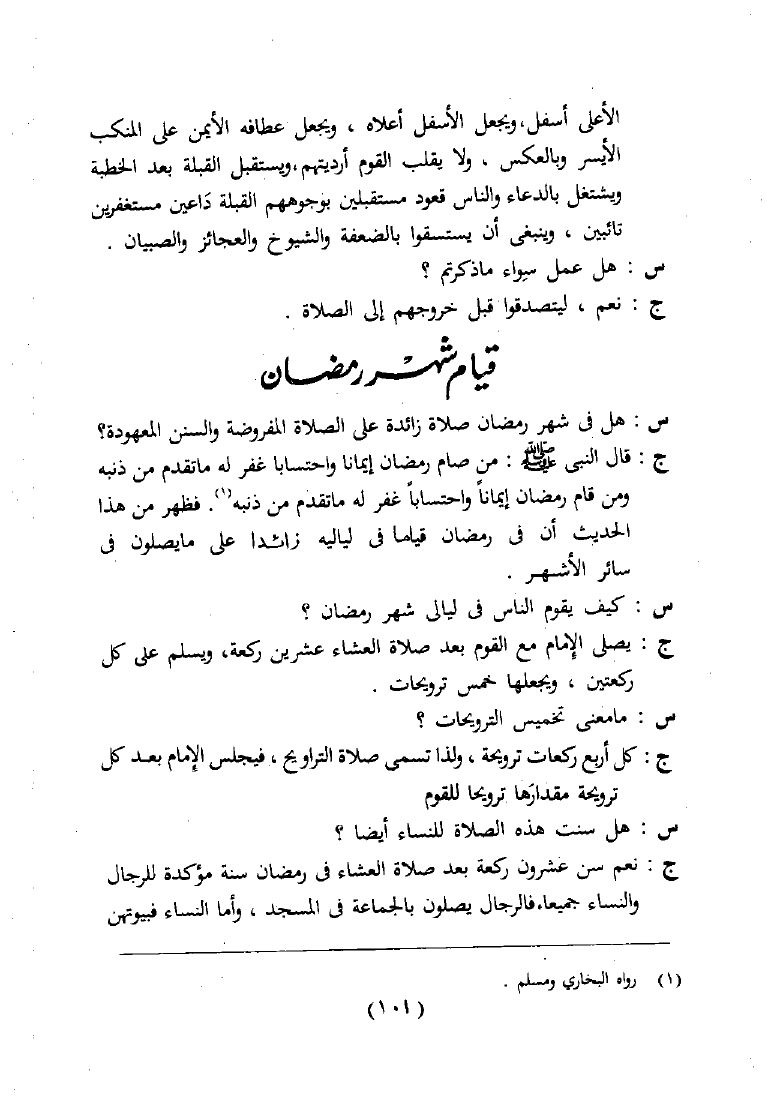 الأعلى أسفل، ويجعل الأسفل أعلاه ، ويجعل عطافه الأيمن على المنكب
الأيسر وبالعكس ، ولا يقلب القوم أرديتهم، ويستقبل القبلة بعد الخطبة
ويشتغل بالدعاء والناس قعود مستقبلين بوجوههم القبلة دَاعين مستغفرين
تائبين ، وينبغى أن يستسقوا بالضعفة والشيوخ والعجائز والصبيان .
س : هل عمل سِواء ماذكرتم ؟
ج : نعم ، ليتصدقوا قبل خروجهم إلى الصلاة .
قيام شهر رمضان
س : هل فى شهر رمضان صلاة زائدة على الصلاة المفروضة والسنن المعهودة؟
ج : قال النبى ﷺ : من صام رمضان إيمانا واحتسابا غفر له ماتقدم من ذنبه
ومن قام رمضان إيماناً واحتساباً غفر له ماتقدم من ذنبه(١). فظهر من هذا
الحديث أن فى رمضان قياما فى لياليه زائدا على مايصلون فى
سائر الأشهر .
س : كيف يقوم الناس فى ليالى شهر رمضان ؟
ج : يصلى الإمام مع القوم بعد صلاة العشاء عشرين ركعة، ويسلم على كل
ركعتين ، ويجعلها خمس ترويحات .
س : مامعنى تخميس الترويحات ؟
ج : كل أربع ركعات ترويحة ، ولذا تسمى صلاة التراويح ، فيجلس الإمام بعد كل
ترويحة مقدارَها ترويحا للقوم
س : هل سنت هذه الصلاة للنساء أيضا ؟
ج : نعم سن عشرون ركعة بعد صلاة العشاء فى رمضان سنة مؤكدة للرجال
والنساء جميعا، فالرجال يصلون بالجماعة فى المسجد ، وأما النساء فبيوتهن
(١) رواه البخاري ومسلم .
(١٠١)